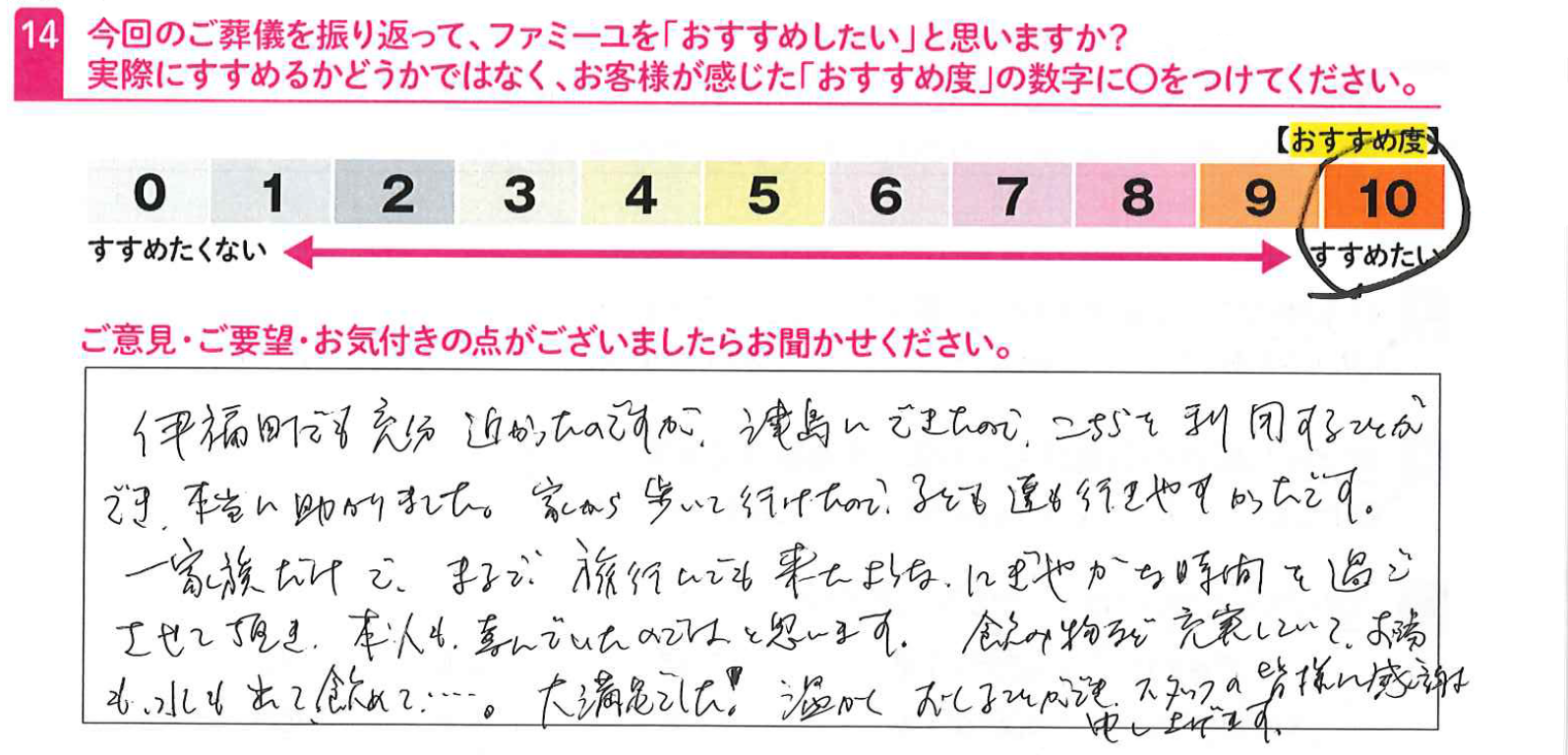 14 今回のご葬儀を振り返って、ファミーユを「おすすめしたい」と思いますか?
実際にすすめるかどうかではなく、お客様が感じた「おすすめ度」の数字に〇をつけてください。
【おすすめ度】
0 1 2 3 4 5 6 7 8 9 10
すすめたくない すすめたい
ご意見・ご要望・お気付きの点がございましたらお聞かせください。
伊福町でも充分近かったのですが、津島にできたので、こちらを利用することが
でき、本当に助かりました。家から歩いて行けたので、子ども達も行きやすかったです。
一家族だけで、まるで旅行にでも来たような、にぎやかな時間を過ご
させて頂き、本人も、喜んでいたのではと思います。飲み物など充実していて、お湯
も、水しも出て飲めて……。大満足でした!温かくおくることができ、スタッフの皆様に感謝
申し上げます。